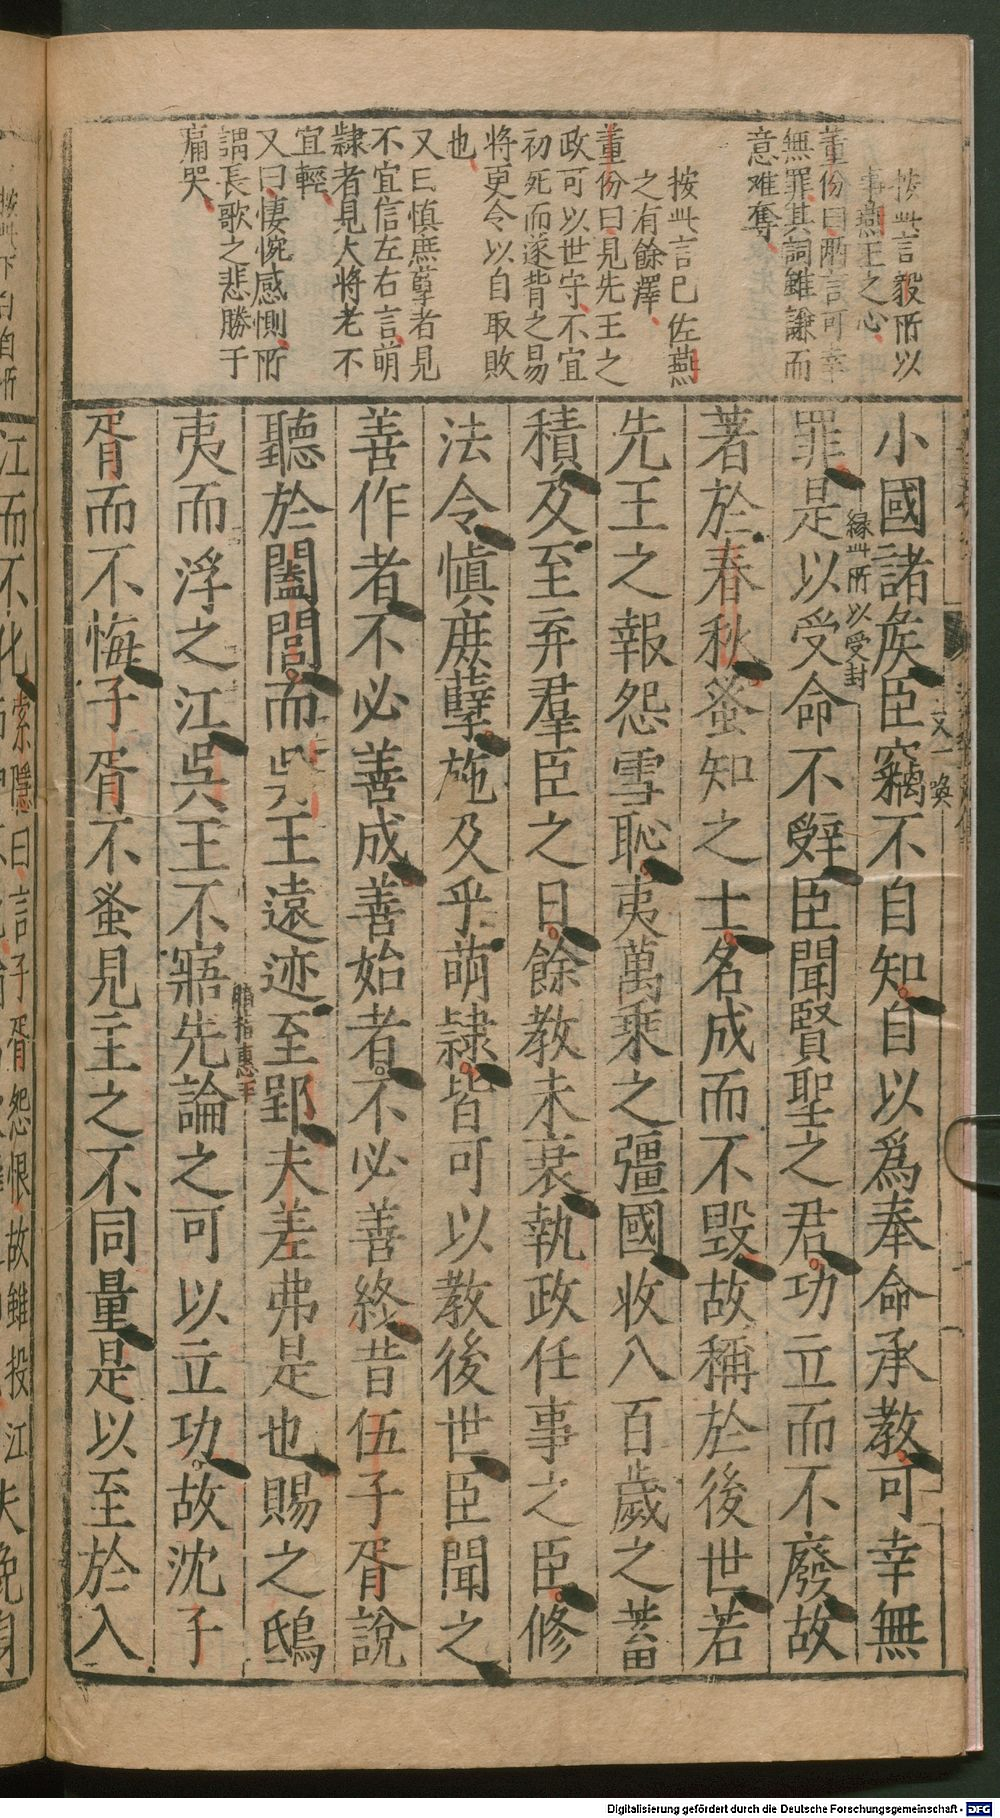 按此言毅所以
事燕王之心
董份曰兩言可幸
無罪其詞雖謙而
意难奪
按此言已佐燕
之有餘澤
董份曰見先王之
政可以世守不宜
初死而遂背之易
将更令以自取敗
也
又曰慎庶孽者見
不宜信左右言萌
隸者見大將老不
宜輕
又曰悽惋感惻所
謂長歌之悲勝于
痛哭
小國諸矦臣竊不自知自以爲奉命承教可幸無
又一喚
罪是以受命不辤臣聞賢聖之君功立而不廢故
緣此所以受封
著於春秋蚤知之士名成而不毀故稱於後世若
先王之報怨雪恥夷萬乘之彊國收八百歲之蓄
積及至弃羣臣之日餘教未衰執政任事之臣修
法令愼庶孽施及乎萌隸皆可以教後世臣聞之
善作者不必善成善始者不必善終昔伍子胥說
聽於闔閭而吳王遠迹至郢夫差弗是也賜之鴟
暗指惠王
夷而浮之江吳王不寤先論之可以立功故沈子
胥而不悔子胥不蚤見主之不同量是以至於入
江而不化索隱曰言子胥怨恨故雖投江